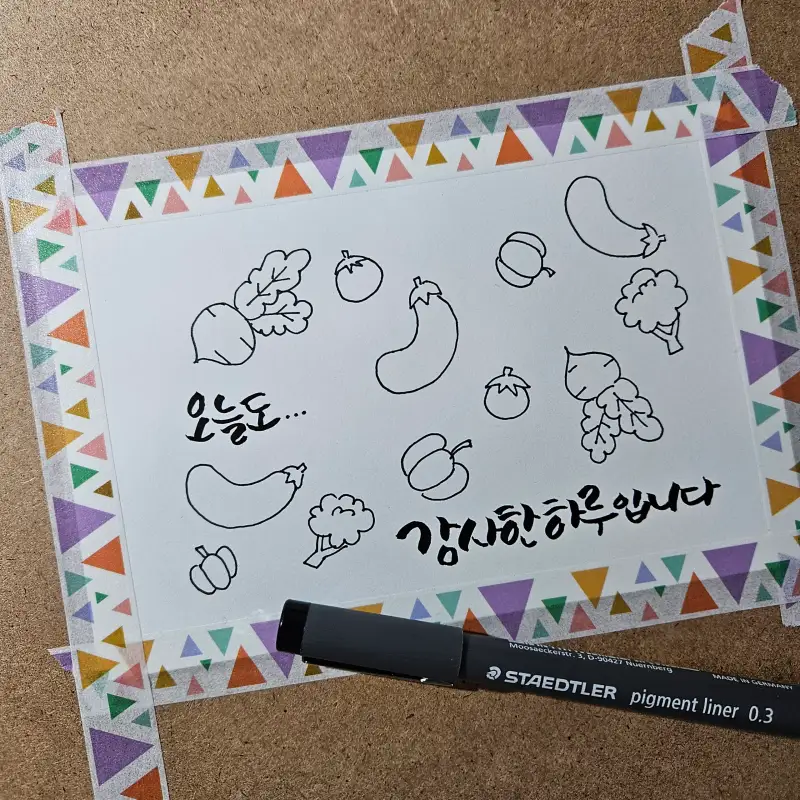 오늘도...
감사한 하루입니다
Moosaeckerstr. 3, D-90427 Nuernberg
MADE IN GERMANY
STAEDTLER pigment liner 0.3